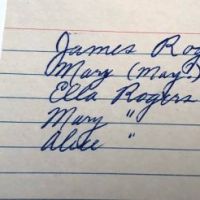 James Rog
Mary (May?)
Ella Rogers
Mary "
Alice "